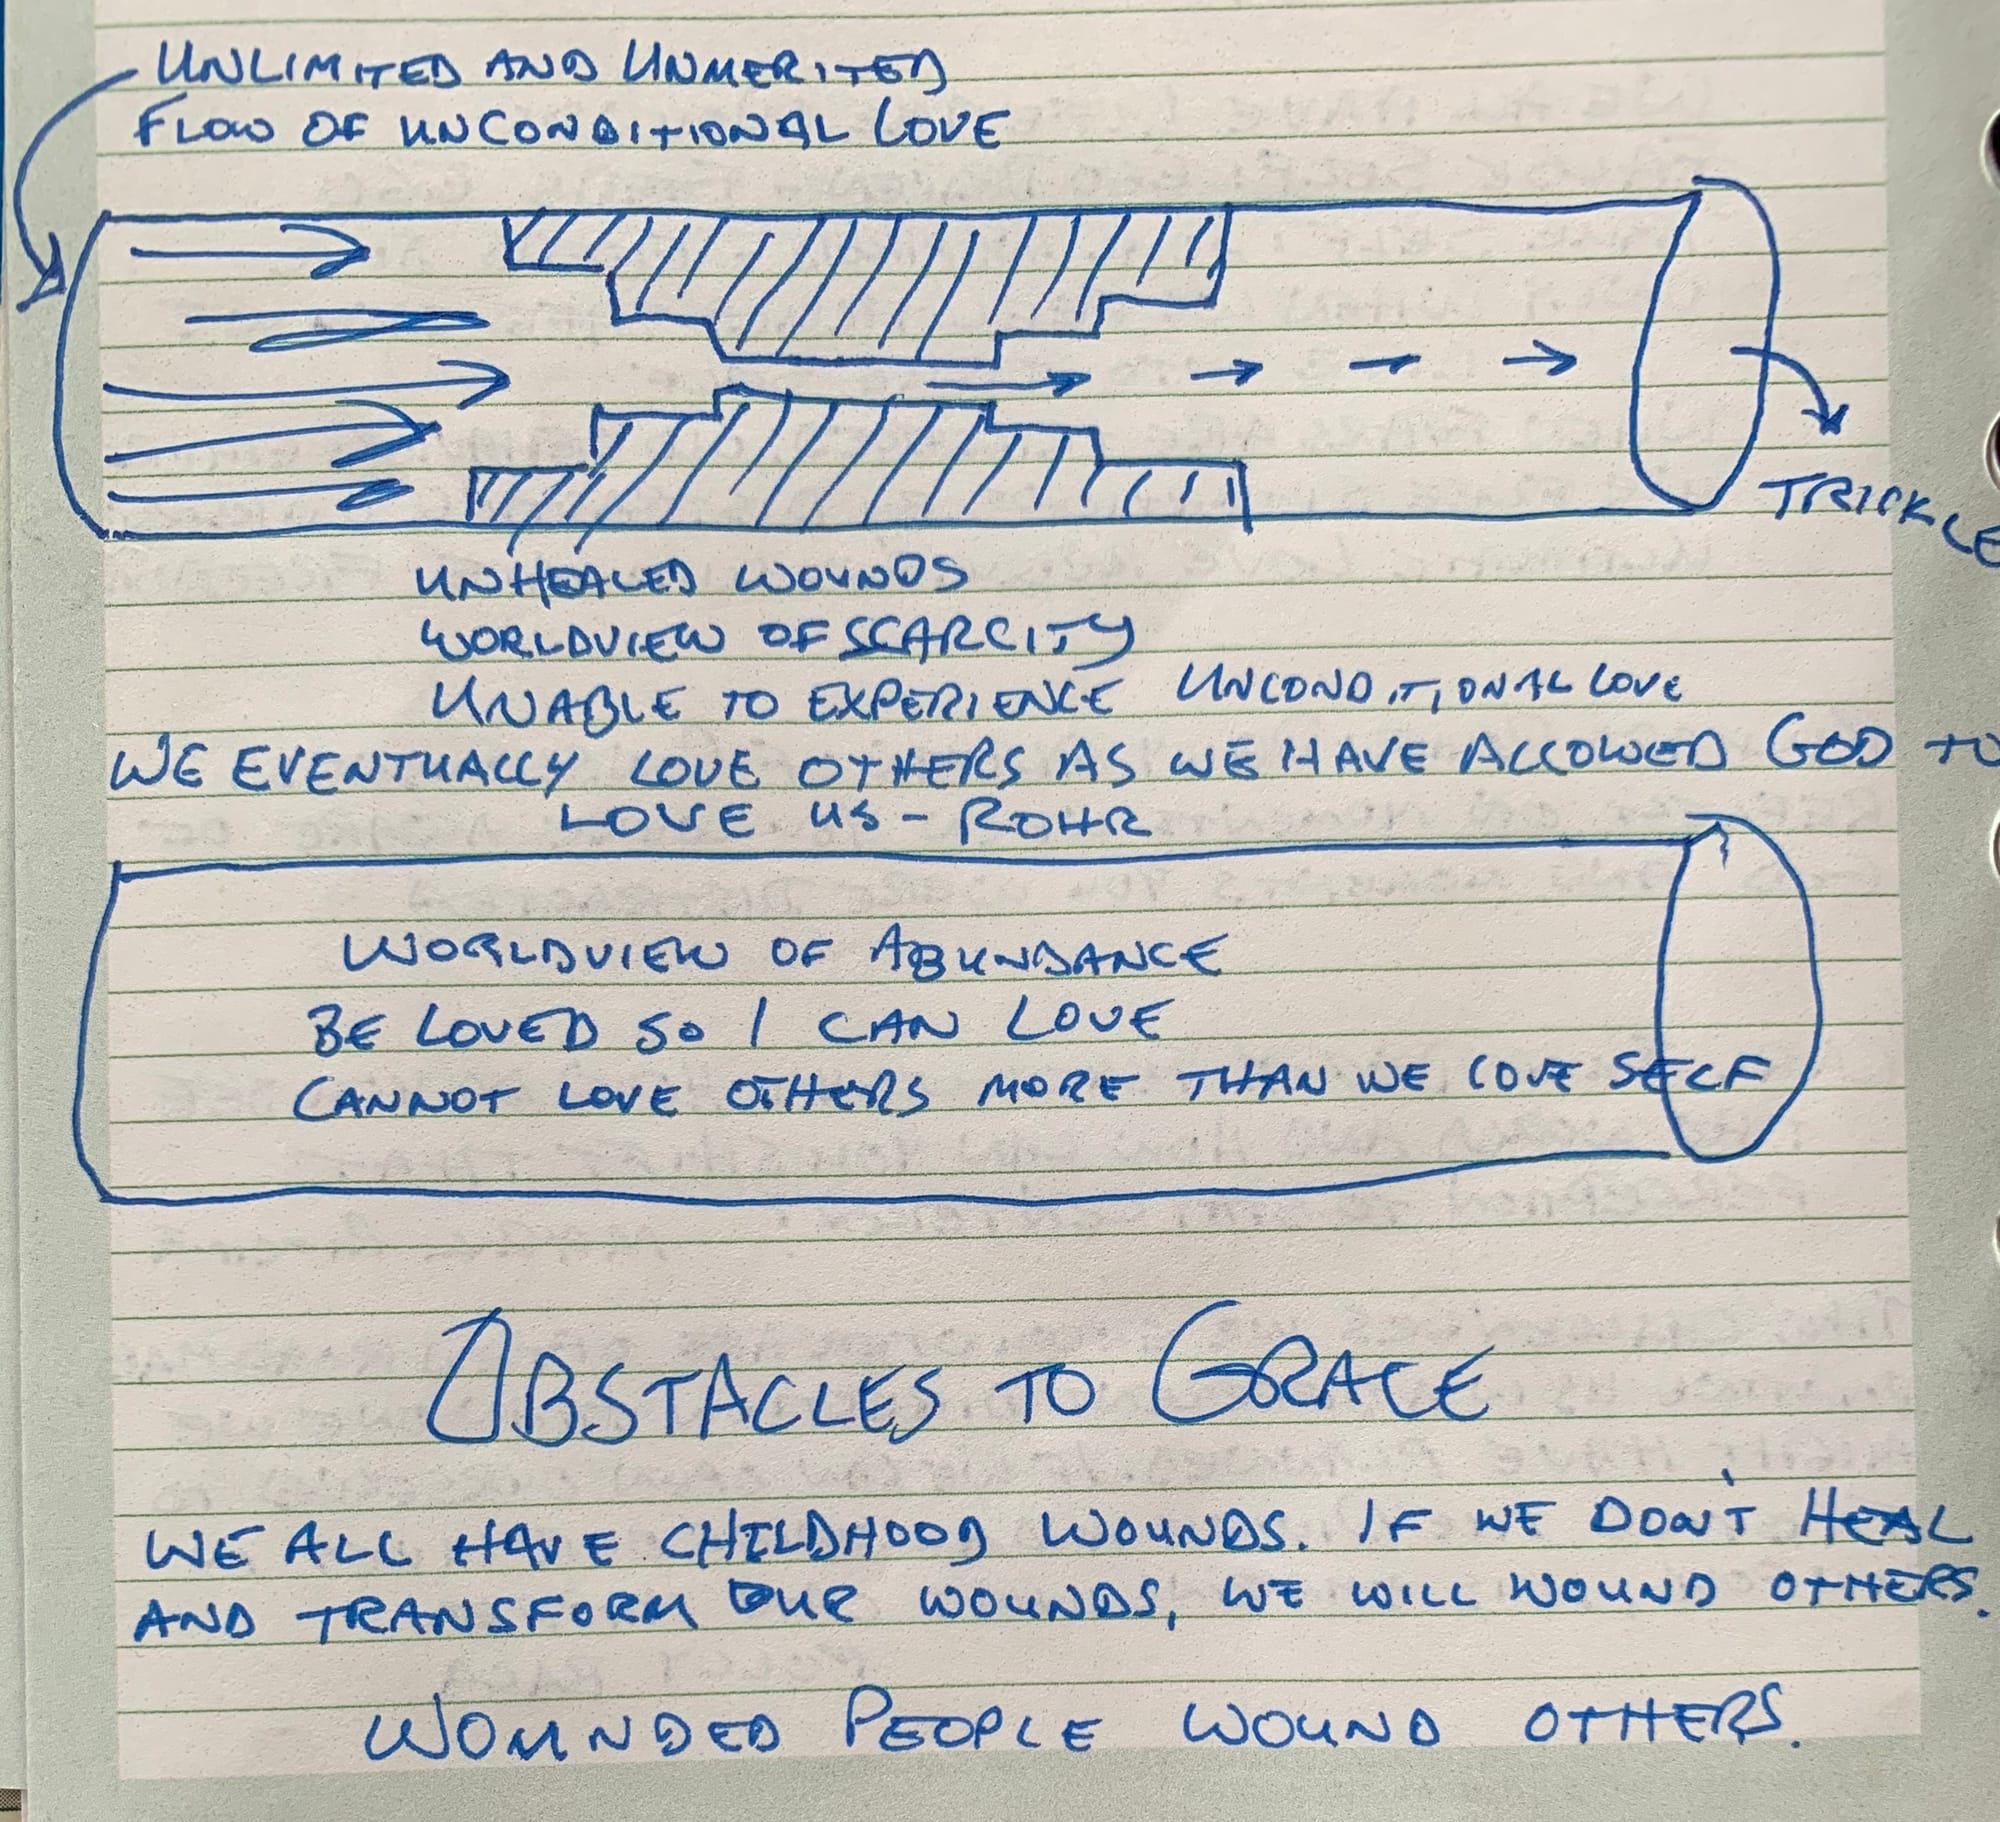 UNLIMITED AND UNMERITED
FLOW OF UNCONDITIONAL LOVE
TRICKLE
UNHEALED WOUNDS
WORLDVIEW OF SCARCITY
UNABLE TO EXPERIENCE UNCONDITIONAL LOVE
WE EVENTUALLY LOVE OTHERS AS WE HAVE ALLOWED GOD TO
LOVE US - ROHR
WORLDVIEW OF ABUNDANCE
BE LOVED SO I CAN LOVE
CANNOT LOVE OTHERS MORE THAN WE LOVE SELF
OBSTACLES TO GRACE
WE ALL HAVE CHILDHOOD WOUNDS. IF WE DON'T HEAL
AND TRANSFORM OUR WOUNDS, WE WILL WOUND OTHERS.
WOUNDED PEOPLE WOUND OTHERS.